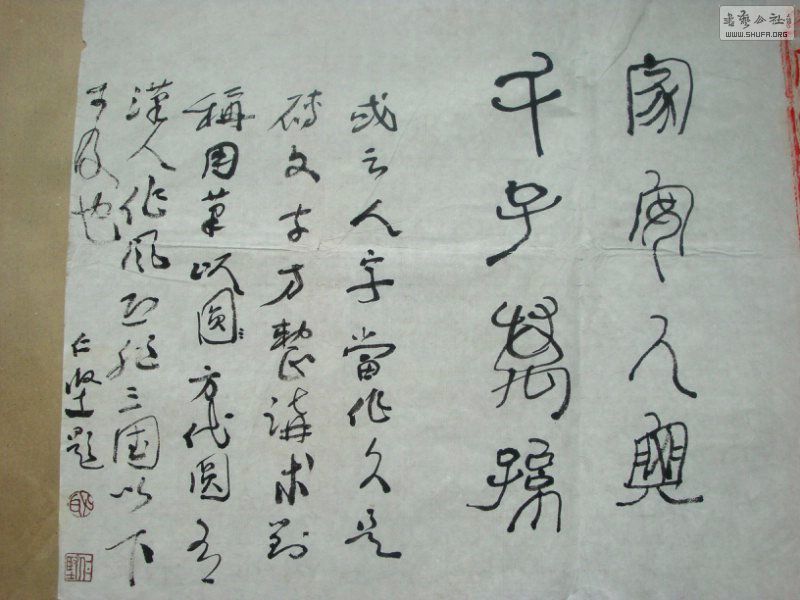 家安人興
千子萬孫
或云人字當作久是
磚文字方整講求對
稱用筆以圓方代圓為
漢人作風而非三國以下
可及也
仁堅題
書藝公社
WWW.SHUFA.ORG